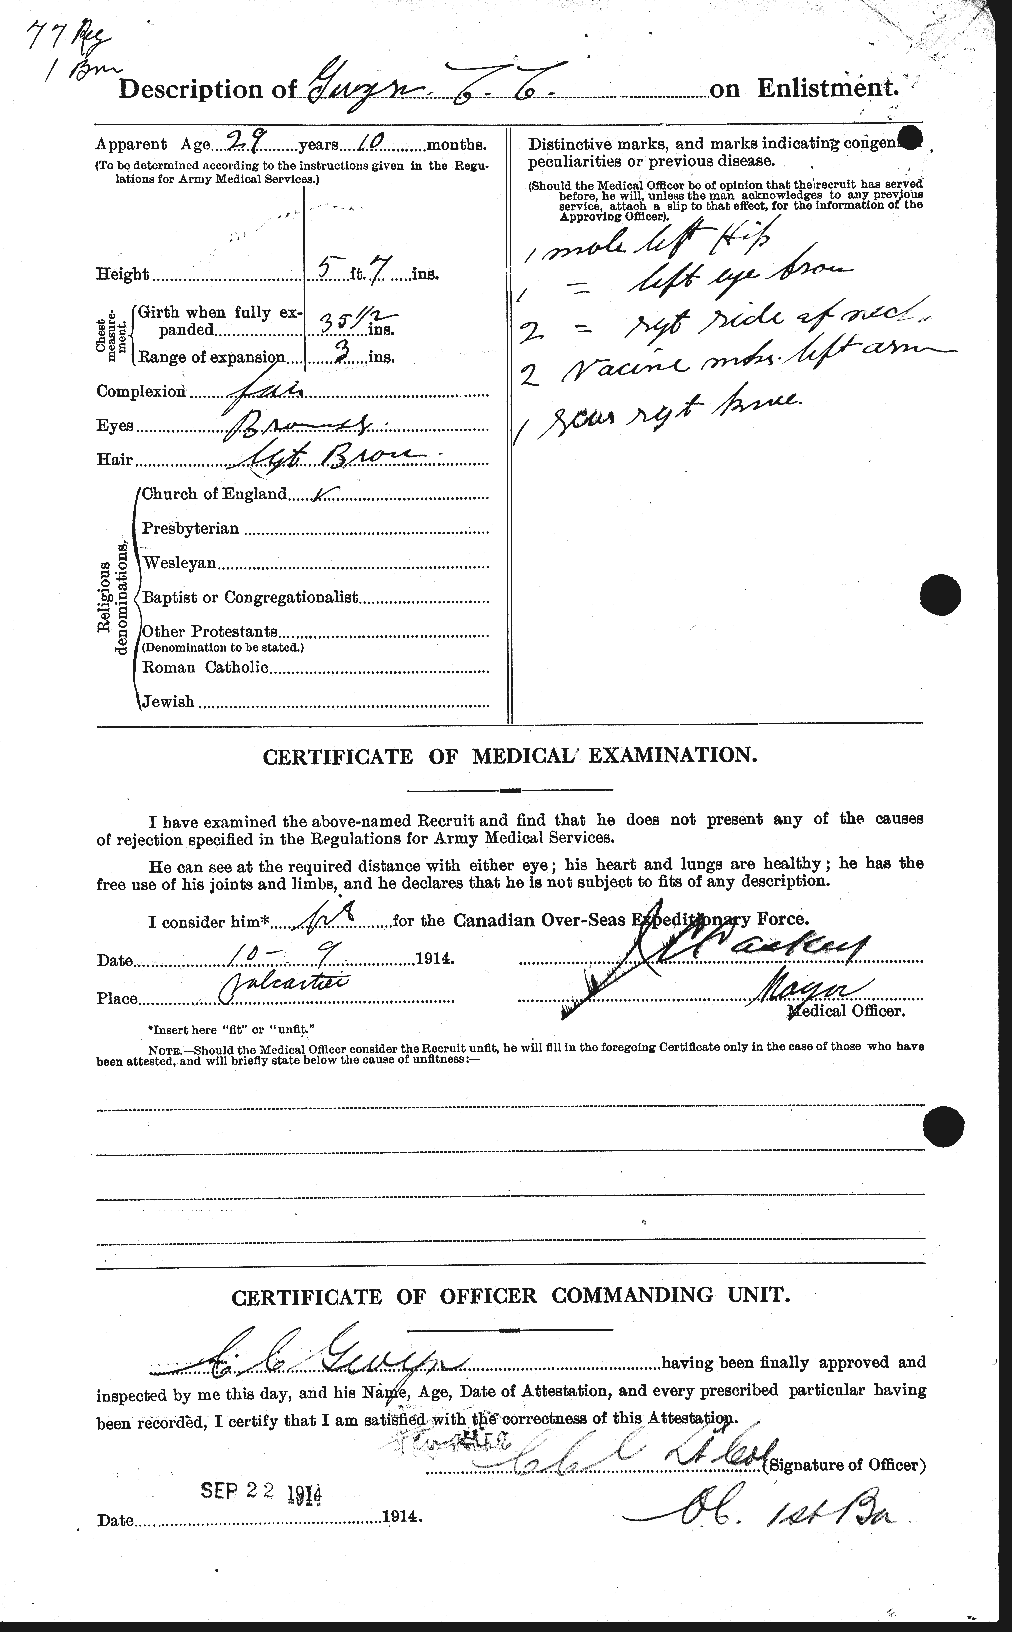 77 Reg
1 Bn
Description of Gwyn C. C. on Enlistment.
Apparent Age 29 years 10 months.
(To be determined according to the instructions given in the Regu-
lations for Army Medical Services.)
Height 5 ft. 7 ins.
Chest measure-ment.
Girth when fully ex-
panded 35 1/2 ins.
Range of expansion 3 ins.
Complexion fair
Eyes Brown
Hair Lgt Brou
Religious denominations.
Church of England
Presbyterian
Wesleyan
Baptist or Congregationalist
Other Protestants
(Denomination to be stated.)
Roman Catholic
Jewish
Distinctive marks, and marks indicating congeni
peculiarities or previous disease.
(Should the Medical Officer be of opinion that the recruit has served
before, he will, unless the man acknowledges to any previous
service, attach a slip to that effect, for the information of the
Approving Officer).
1 mole left Hip
1 = left eye brou
2 = ryt side of neck
2 Vacine mks left arm
1 scar ryt knue
CERTIFICATE OF MEDICAL EXAMINATION.
I have examined the above-named Recruit and find that he does not present any of the causes
of rejection specified in the Regulations for Army Medical Services.
He can see at the required distance with either eye; his heart and lungs are healthy; he has the
free use of his joints and limbs, and he declares that he is not subject to fits of any description.
I consider him* fit for the Canadian Over-Seas Expeditionary Force.
Date 10 - 9 1914.
Place Valcartier
Mayor
Medical Officer.
*Insert here "fit" or "unfit."
NOTE.—Should the Medical Officer consider the Recruit unfit, he will fill in the foregoing Certificate only in the case of those who have
been attested, and will briefly state below the cause of unfitness:—
CERTIFICATE OF OFFICER COMMANDING UNIT.
C C Gwyn having been finally approved and
inspected by me this day, and his Name, Age, Date of Attestation, and every prescribed particular having
been recorded, I certify that I am satisfied with the correctness of this Attestation.
Lt Col (Signature of Officer)
SEP 22 1914
Date 1914.
OC. 1st Bn